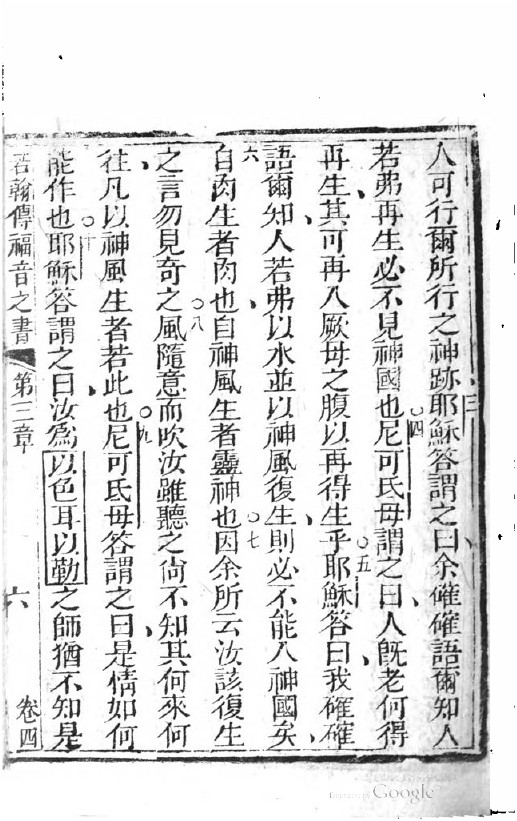 人可行爾所行之神跡耶穌答謂之曰余確確語爾知人
若弗再生必不見神國也尼可氏母謂之曰人旣老何得
再生其可再入厥母之腹以再得生乎耶穌答曰我確確
語爾知人若弗以水並以神風復生則必不能入神國矣
自肉生者肉也自神風生者靈神也因余所云汝該復生
之言勿見奇之風隨意而吹汝雖聽之尙不知其何來何
往凡以神風生者若此也尼可氏母答謂之曰是情如何
能作也耶穌答謂之曰汝為以色耳以勒之師猶不知是
若翰傳福音之書 第三章 六 卷四
三
〇四
〇五
六
〇七
〇八
〇九
〇十
Google